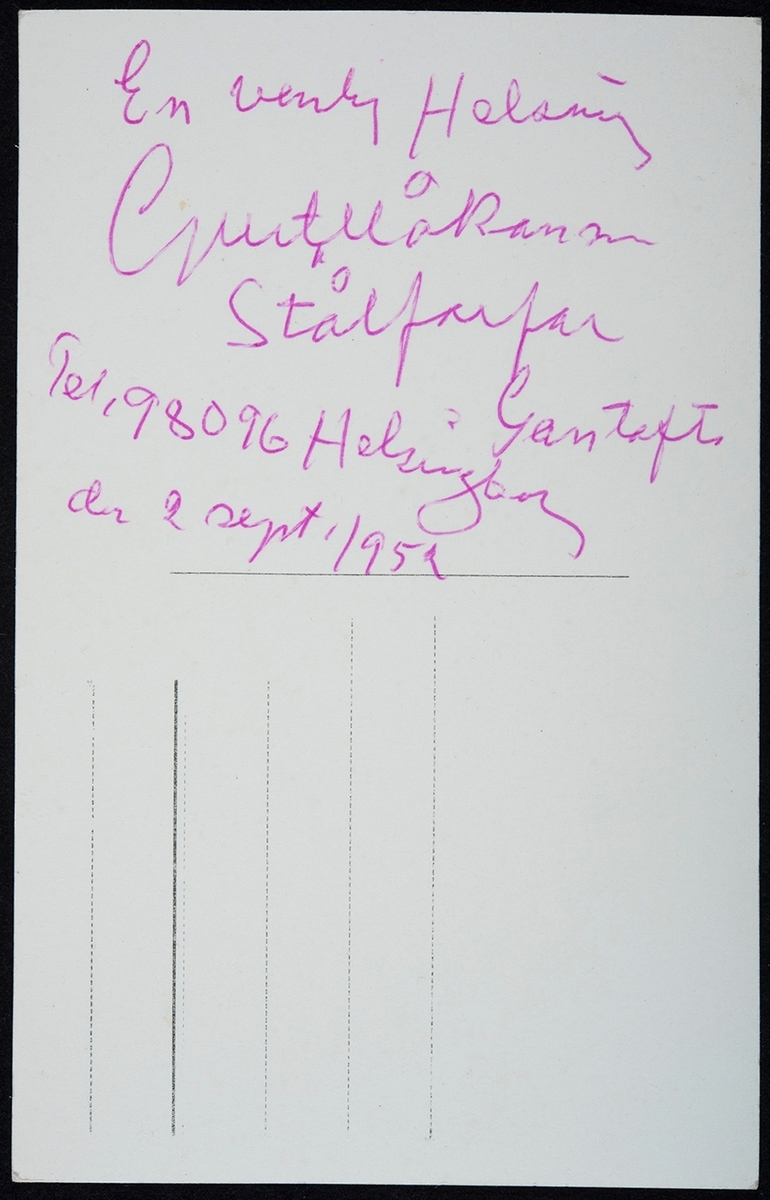 En venlig Helsning
Gustaf Håkansson
Stålfarfar
Tel, 98096 Helsingborg Gantofta
den 2 sept, 1952